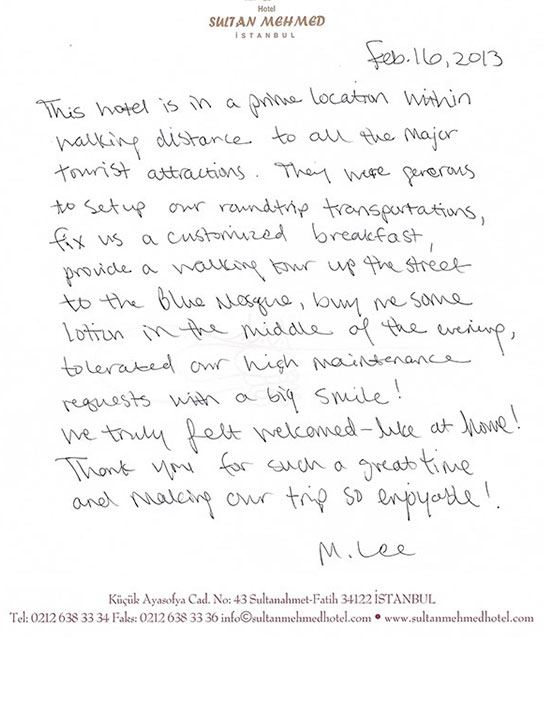 Hotel
SULTAN MEHMED
İSTANBUL
Feb. 16, 2013
This hotel is in a prime location within
walking distance to all the major
tourist attractions. They were generous
to setup our roundtrip transportations,
fix us a customized breakfast,
provide a walking tour up the street
to the Blue Mosque, buy me some
lotion in the middle of the evening,
tolerated our high maintenance
requests with a big smile!
We truly felt welcomed - like at home!
Thank you for such a great time
and making our trip so enjoyable!
M. Lee
Küçük Ayasofya Cad. No: 43 Sultanahmet-Fatih 34122 İSTANBUL
Tel: 0212 638 33 34 Faks: 0212 638 33 36 info©sultanmehmedhotel.com • www.sultanmehmedhotel.com